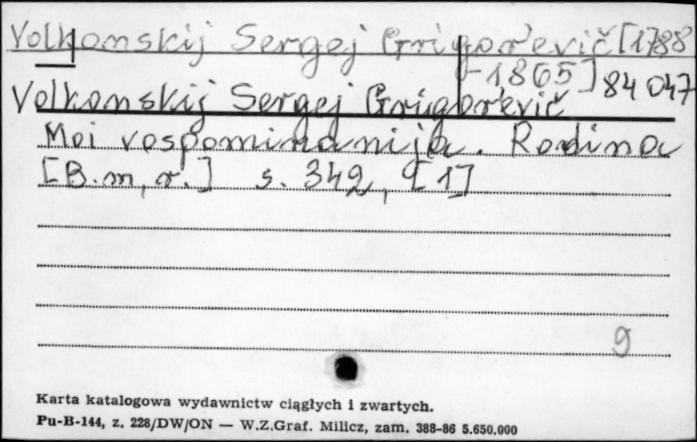 Volkonskij Sergej Grigor'evič [1788
-1865] 84047
Volkonskij Sergej Grigor'evič
Moi vospominanija. Rodina
[B.m, r.] s. 342, [1]
9
Karta katalogowa wydawnictw ciągłych i zwartych.
Pu-B-144, z. 228/DW/ON — W.Z.Graf. Milicz, zam. 388-86 5.650.000